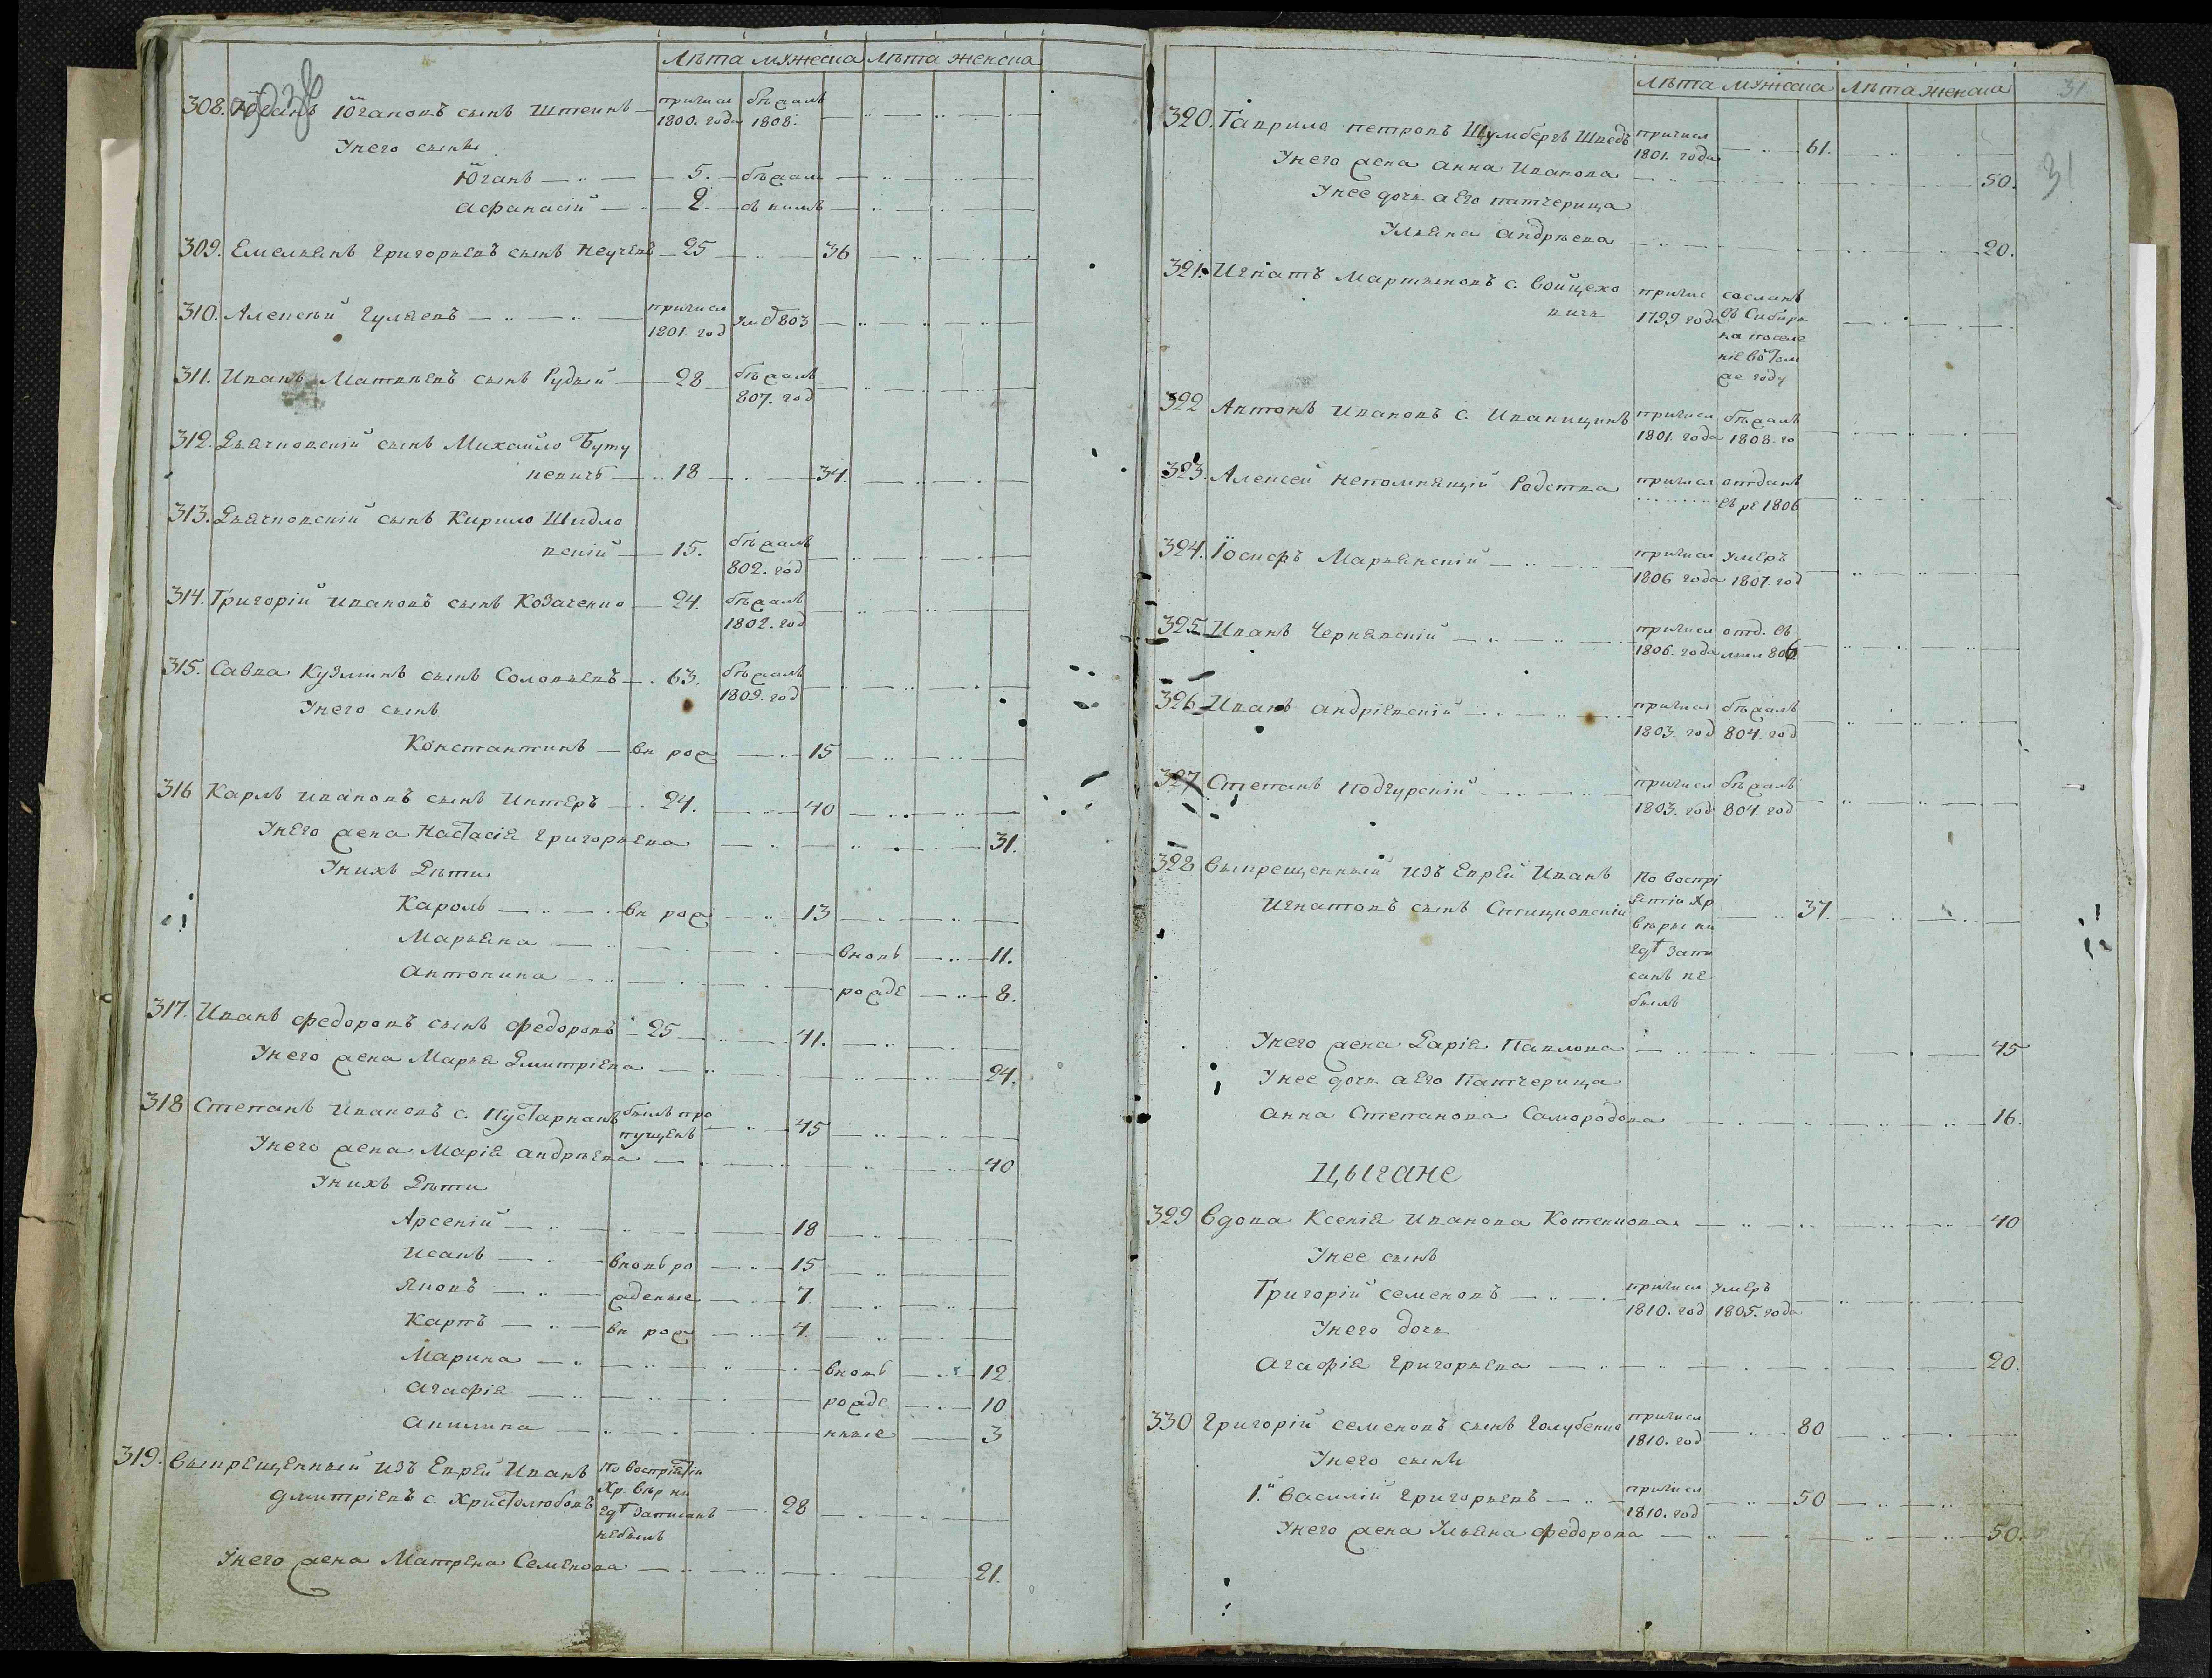 Лѣта мужеска Лѣта женска
308. Юганъ Югановъ сынъ Штеинъ причисл 1800. года бѣжалъ 1808.
Унего сынъ
Юганъ 5. бѣжали
Афанасій 2. съ нимъ
309. Емельянъ Григорьевъ сынъ Неучевъ 25 36
310. Алексѣй Гуляевъ причисл 1801 год Ум 803
311. Иванъ Матвѣевъ сынъ Рудый 28 бѣжалъ 807. год
312. Дьячковскій сынъ Михайло Буту
кевичъ 18 34.
313. Дьячковскій сынъ Кирило Шидло
вскій 15. бѣжалъ 802. год
314. Григорій Ивановъ сынъ Козаченко 24. бѣжалъ 1802. год
315. Савва Кузминъ сынъ Соловьевъ 63. бѣжалъ 1809. год
Унего сынъ
Константинъ вн рож 15
316 Карлъ Ивановъ сынъ Интеръ 24. 40
Унего жена Настасія Григорьева 31.
Унихъ Дѣти
Кароль вн рож 13
Марьяна вновь 11.
Антонина рожде 8.
317. Иванъ Федоровъ сынъ Федоровъ 25 41.
Унего жена Марья Дмитріева 24.
318 Степанъ Ивановъ с. Пустарнакъ былъ пропущенъ 45
Унего жена Марія Андрѣева 40
Унихъ Дѣти
Арсеній 18
Исакъ вновь ро 15
Яковъ жденые 7.
Карпъ вн рож 4.
Марина вновь 12.
Агафія рожде 10
Акилина нные 3
319. Выкрещенный изъ Еврей Иванъ По воспріятіи
Дмитріевъ с. Христолюбовъ Хр. вѣр ни гдѣ записанъ небылъ 28
Унего жена Матрена Семенова 21.
31
31
Лѣта мужеска Лѣта женска
320. Гаврила Петровъ Шумбергъ Шведъ причисл 1801. года 61.
Унего жена Анна Иванова 50.
Унее дочь а его патчерица
Ульяна Андрѣева 20.
321. Игнатъ Мартыновъ с. Войцехо
вичь причис 1799 года сосланъ въ Сибирь на поселеніе вотомже году
322 Антонъ Ивановъ с. Иваницинъ причисл 1801. года бѣжалъ 1808. го
323. Алексей непомнящій Родства причисл отданъ въ ре 1806
324. Іосифъ Марьянскій причисл 1806 года умеръ 1807. год
325 Иванъ Чернявскій причисл 1806. года отд. въ мил 806
326 Иванъ Андріевскій причисл 1803. год бѣжалъ 804. год
327 Степанъ Подгурскій причисл 1803. год бѣжалъ 804. год
328 Выкрещенный изъ Еврей Иванъ По воспрі
Игнатовъ сынъ Стицковскій ятіи Хр вѣры ни гдѣ записанъ не былъ 37.
Унего жена Дарія Павлова 45
Унее дочь а его Патчерица
Анна Степанова Самородова 16.
Цыгане
329 Вдова Ксенія Иванова Котенкова 40
Унее сынъ
Григорій Семеновъ причисл 1810. год умеръ 1805. года
Унего дочь
Агафія Григорьева 20.
330 Григорій Семеновъ сынъ Голубенко причисл 1810. год 80
Унего сынъ
1. Василій Григорьевъ причисл 1810. год 50
Унего жена Ульяна Федорова 50.